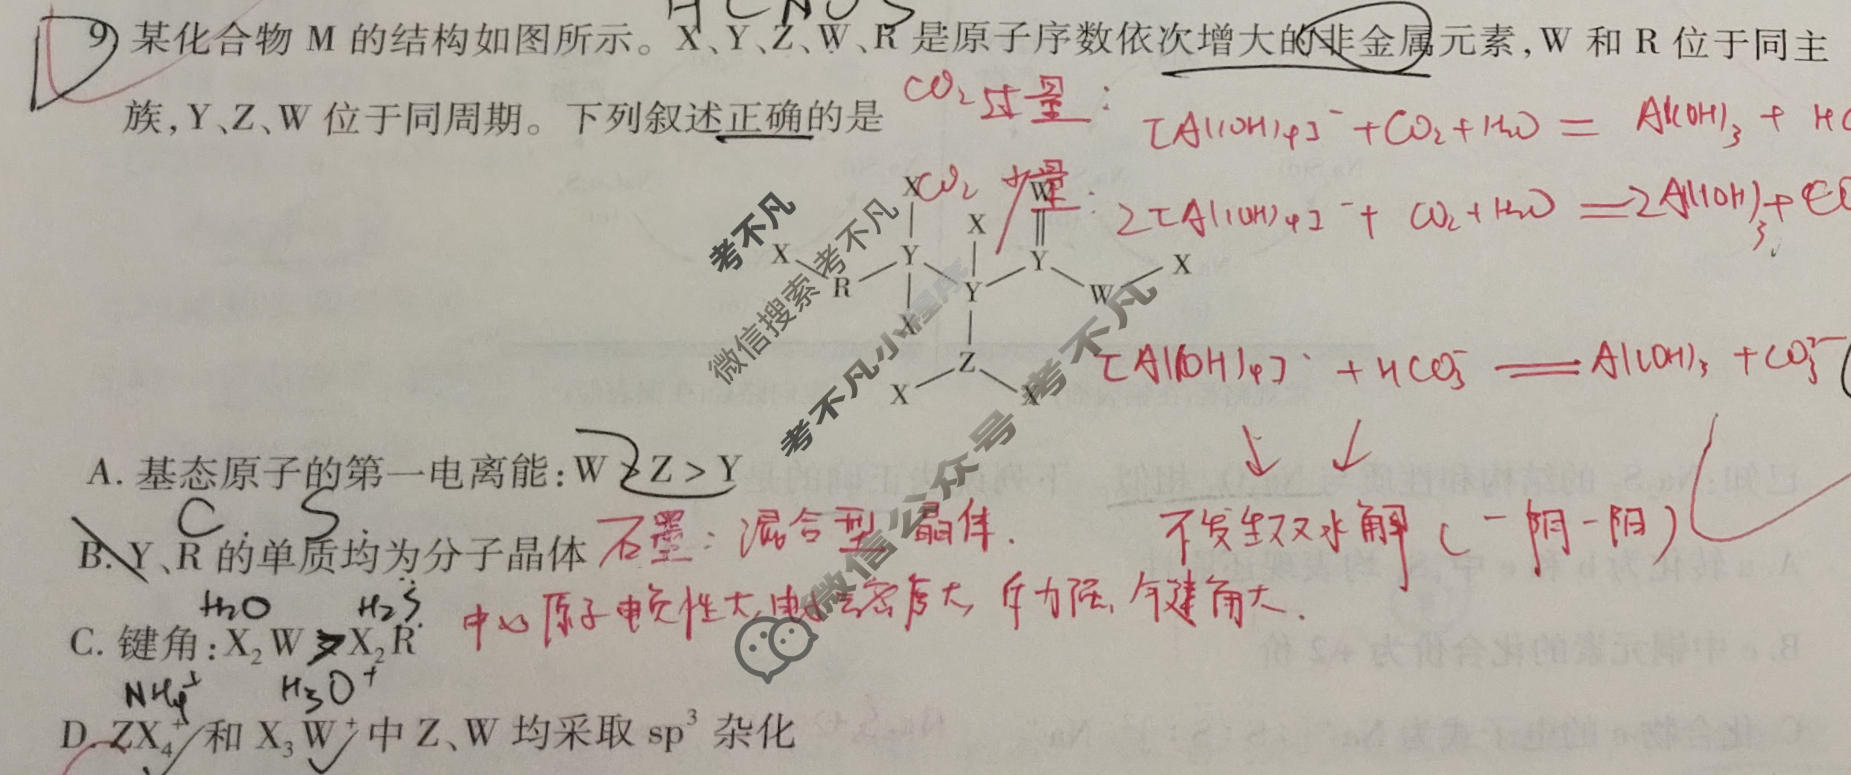 H C N O S
9. 某化合物 M 的结构如图所示。X、Y、Z、W、R 是原子序数依次增大的非金属元素,W 和 R 位于同主
族,Y、Z、W 位于同周期。下列叙述正确的是
CO₂过量:
[Al(OH)₄]⁻+CO₂+H₂O = Al(OH)₃ + HC
CO₂ 少量:
2[Al(OH)₄]⁻+ CO₂+H₂O =2Al(OH)₃+ CO
X W
X
X Y Y X
R Y W
X
Z
X X
[Al(OH)₄]⁻ + HCO₃⁻ = Al(OH)₃ + CO₃²⁻
↓ ↓
不发生双水解(一阴一阳)
考不凡
微信搜索 考不凡
考不凡小程序
微信公众号 考不凡
A. 基态原子的第一电离能:W > Z > Y
C S
B. Y、R 的单质均为分子晶体
石墨:混合型晶体.
H₂O H₂S
中心原子电负性大,电子云密度大,斥力强,键角大.
C. 键角:X₂W > X₂R
NH₄⁺ H₃O⁺
D. ZX₄⁺ 和 X₃W⁺ 中 Z、W 均采取 sp³ 杂化